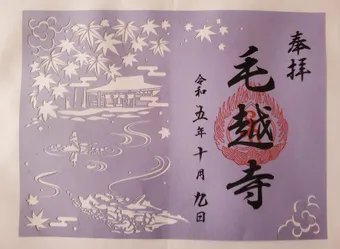 奉拝
毛越寺
令和五年十月九日